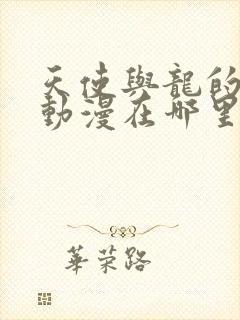 天使與龍的
動漫在哪里
華荣路